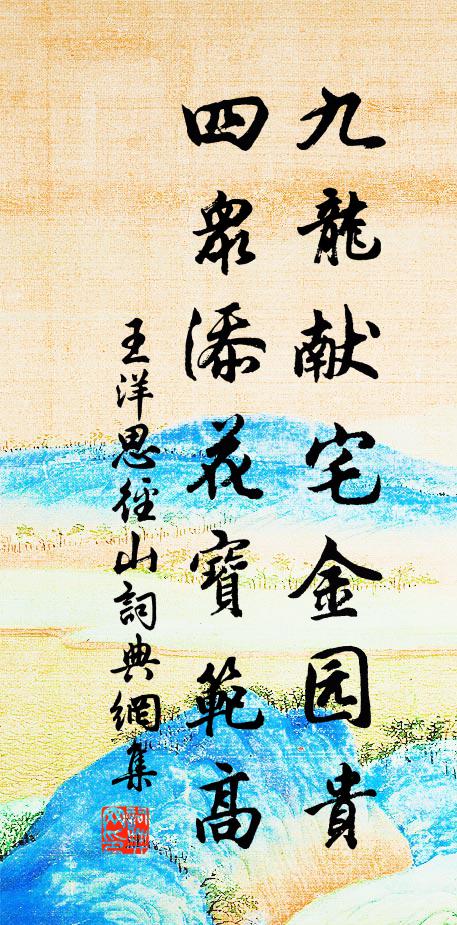 九龍献宅金园貴
四衆添花寶範高
王洋思徑山詞典網集